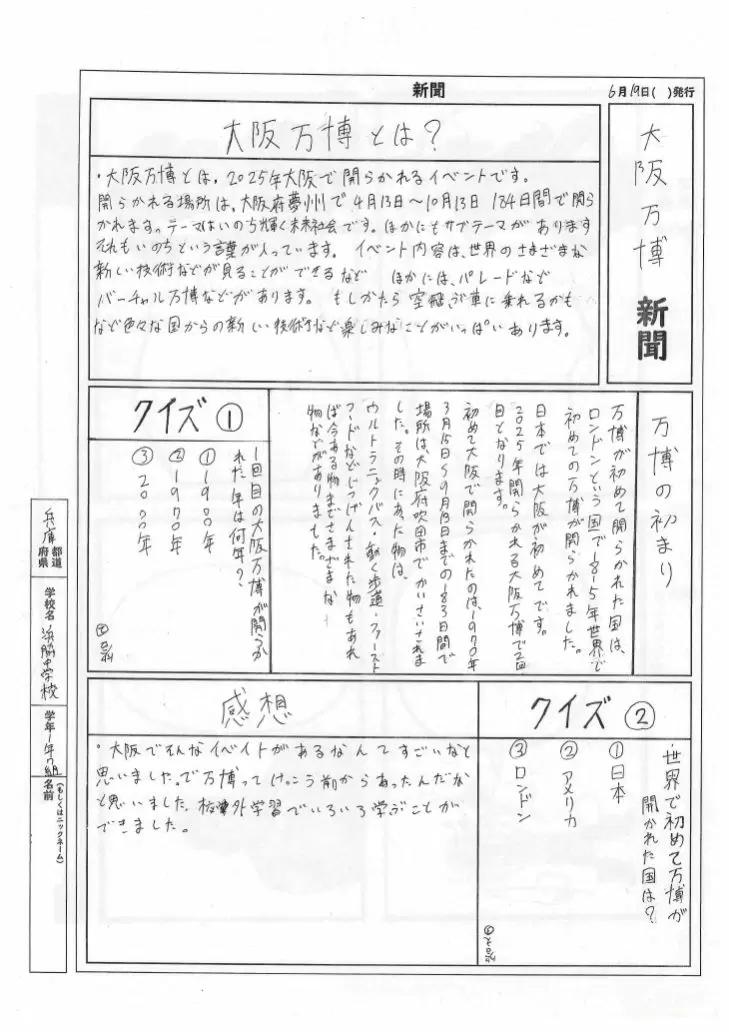 新聞
6月19日( )発行
大阪万博
新聞
大阪万博とは?
・大阪万博とは、2025年大阪で開らかれるイベントです。
開らかれる場所は、大阪府夢州で4月13日〜10月13日 184日間で開ら
かれます。テーマはいのち輝く未来社会です。ほかにもサブテーマがあります
それもいのちという言葉が入っています。 イベント内容は、世界のさまざまな
新しい技術などが見ることができるなど ほかには、パレードなど
バーチャル万博などがあります。 もしかたら空飛ぶ車に乗れるかも
など色々な国からの新しい技術など楽しみなことがいっぱいあります。
万博の初まり
万博が初めて開らかれた国は、
ロンドンという国で1815年世界で
初めての万博が開らかれました。
日本では大阪が初めてです。
2025年開らかれる大阪万博で2回
目となります。
初めて大阪で開らかれたのは、1970年
3月15日〜9月13日までの183日間で
場所は、大阪府吹田市でかいさいされま
した。その時にあた物は、
ウルトラニックバス・動く歩道・ファースト
フードなどじつげんされた物もあれ
ば今ある物までさまざまな
物などがありました。
クイズ①
1回目の大阪万博が開らか
れた年は何年?
①1900年
②1970年
③2000年
クイズ②
世界で初めて万博が
開かれた国は?
①日本
②アメリカ
③ロンドン
感想
・大阪でそんなイベイトがあるなんてすごいなと
思いました。で万博ってけっこう前からあったんだな
と思いました。校外学習でいろいろ学ぶことが
できました。
兵庫 都道府県
学校名 浜脇中学校
学年 1年7組
名前
(もしくはニックネーム)